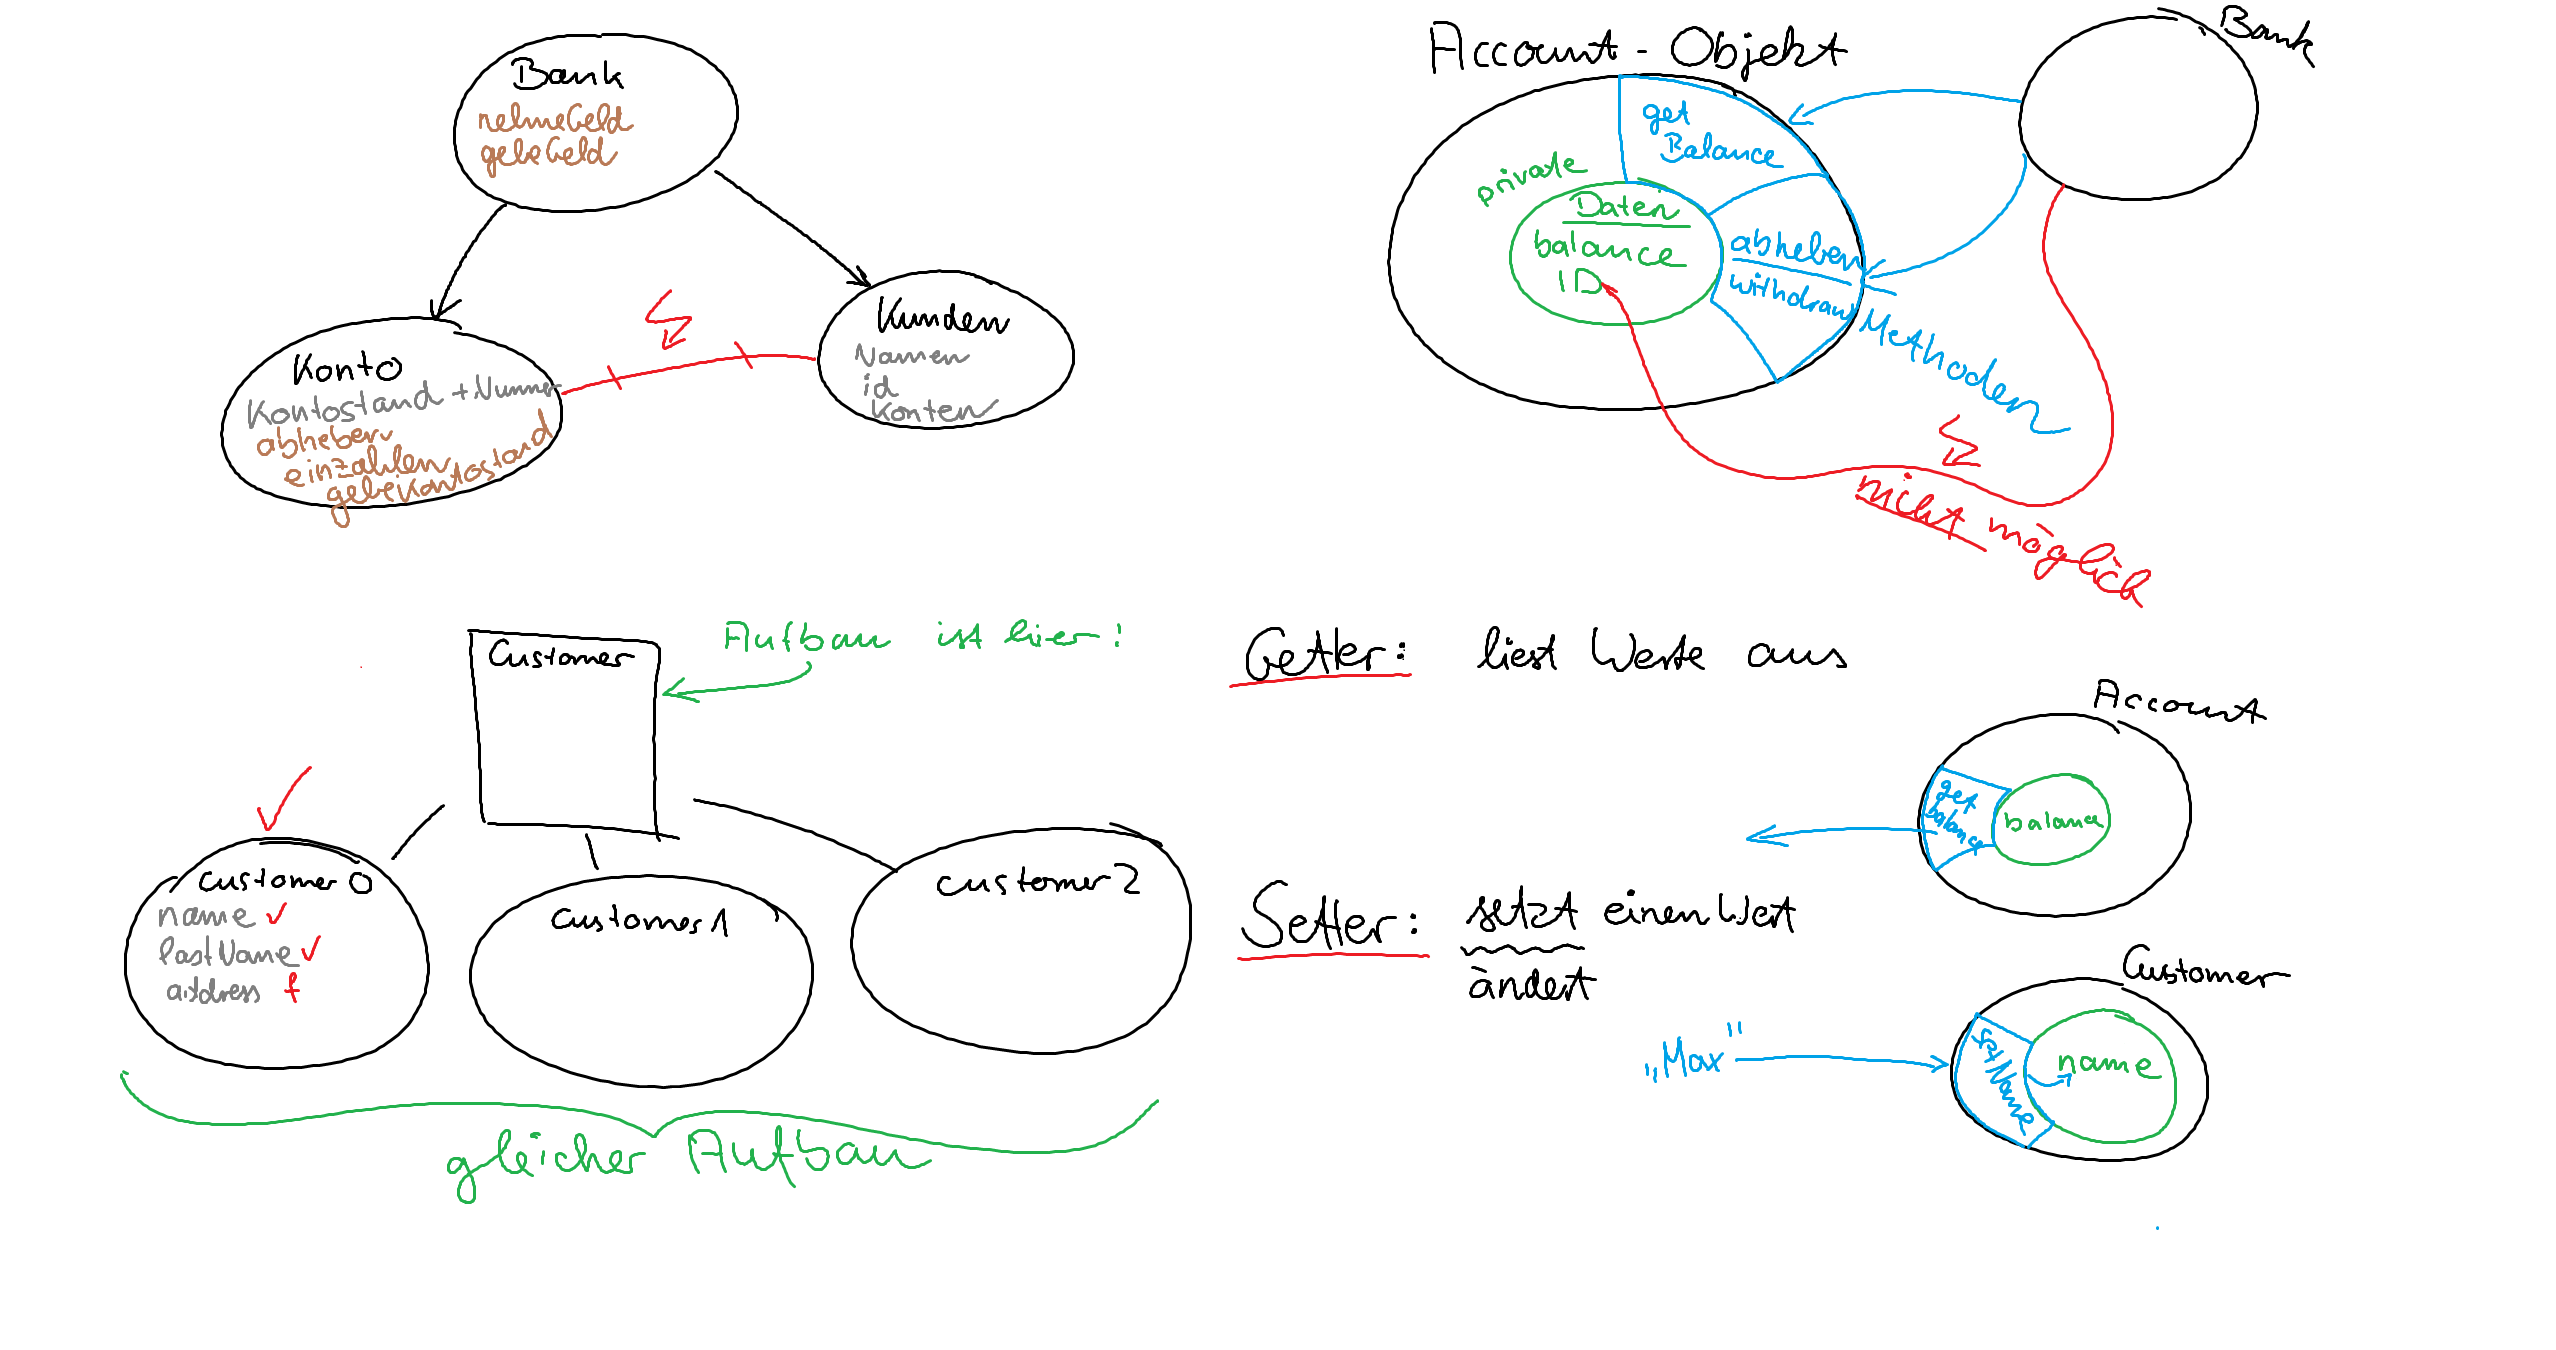 Bank
nehmeGeld
gebeGeld
Konto
Kontostand + Nummer
abheben
einzahlen
gebeKontostand
Kunden
Namen
id
Konten
Account - Objekt
Bank
get
Balance
private
Daten
balance
ID
abheben
withdraw
Methoden
nicht möglich
Customer
Aufbau ist hier!
customer 0
name
lastName
address f
customer 1
customer 2
gleicher Aufbau
Getter: liest Werte aus
Account
get
balance
balance
Setter: setzt einen Wert
ändert
Customer
„Max"
setName
name